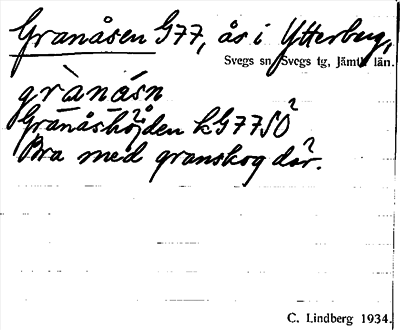 Granåsen G77, ås i Ytterberg,
Svegs sn, Svegs tg, Jämtl. län.
grànåsn
Granåshöjden kG77SO?
Bra med granskog där?.
C. Lindberg 1934.